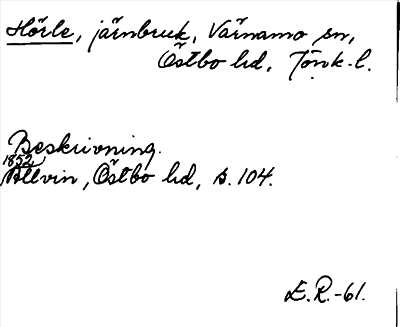 Hörle, järnbruk, Värnamo sn,
Östbo hd, Jönk. l.
Beskrivning.
1852
Allvin, Östbo hd, s. 104.
E.R.-61.